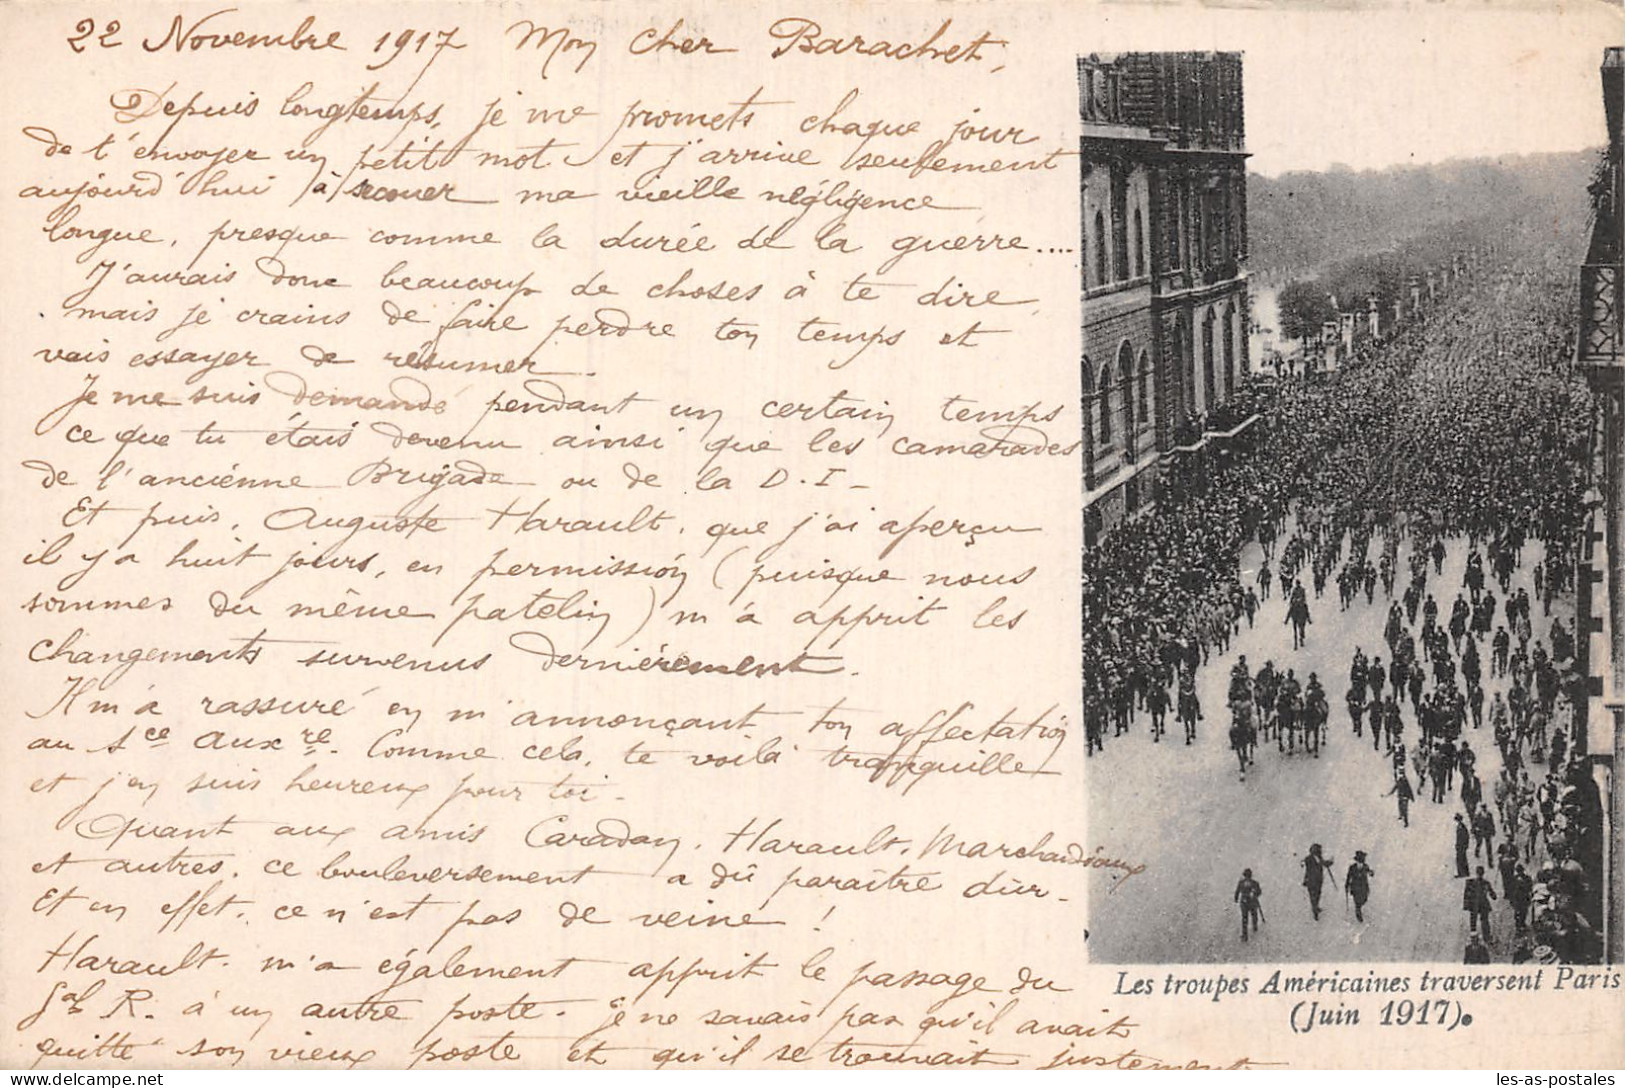 22 Novembre 1917 Mon cher Barachet,
Depuis longtemps, je me promets chaque jour
de t'envoyer un petit mot et j'arrive seulement
aujourd'hui à secouer ma vieille négligence
longue, presque comme la durée de la guerre....
J'aurais donc beaucoup de choses à te dire,
mais je crains de faire perdre ton temps et
vais essayer de résumer.
Je me suis demandé pendant un certain temps
ce que tu étais devenu ainsi que les camarades
de l'ancienne Brigade ou de la D.I-
Et puis, Auguste Harault, que j'ai aperçu
il y a huit jours, en permission (puisque nous
sommes du même patelin) m'a apprit les
changements survenus dernièrement.
Il m'a rassuré en m'annonçant ton affectation
au sce auxre. Comme cela, te voilà tranquille
et j'en suis heureux pour toi.
Quant aux amis Caradan, Harault, Marchandeaux
et autres, ce bouleversement a dû paraître dur.
Et en effet, ce n'est pas de veine !
Harault m'a également apprit le passage du
Gal R. à un autre poste. je ne savais pas qu'il avait
quitté son vieux poste et qu'il se trouvait justement
Les troupes Américaines traversent Paris
(Juin 1917).
les-as-postales